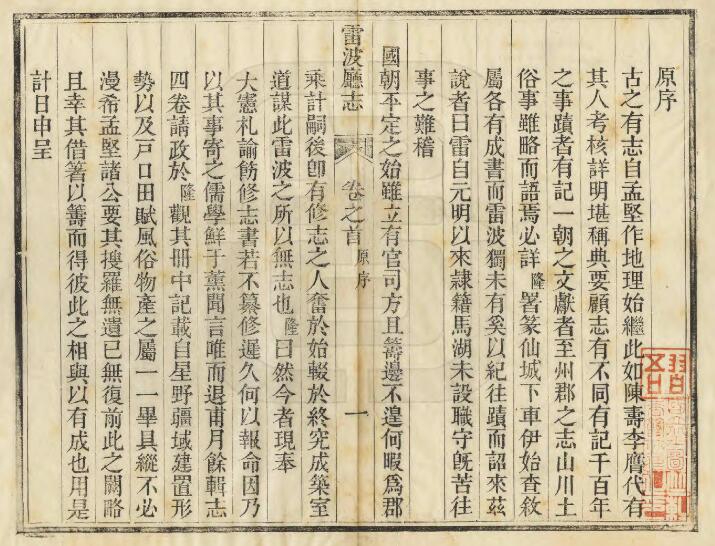 原序
古之有志自孟堅作地理始繼此如陳壽李膺代有
其人考核詳明堪稱典要顧志有不同有記千百年
之事蹟者有記一朝之文獻者至州郡之志山川土
俗事雖略而語焉必詳隆署篆仙城下車伊始查敘
屬各有成書而雷波獨未有奚以紀往蹟而詔來茲
說者曰雷自元明以來隸籍馬湖未設職守旣苦往
事之難稽
國朝平定之始雖立有官司方且籌邊不遑何暇爲郡
雷波廳志
卷之首
原序
一
乘計嗣後卽有修志之人奮於始輟於終究成築室
道謀此雷波之所以無志也隆曰然今者現奉
大憲札諭飭修志書若不纂修遲久何以報命因乃
以其事寄之儒學鮮于薰聞言唯而退甫月餘輯志
四卷請政於隆觀其冊中記載自星野疆域建置形
勢以及戸口田賦風俗物產之屬一一畢具縱不必
漫希孟堅諸公要其搜羅無遺已無復前此之闕略
且幸其借箸以籌而得彼此之相與以有成也用是
計日申呈